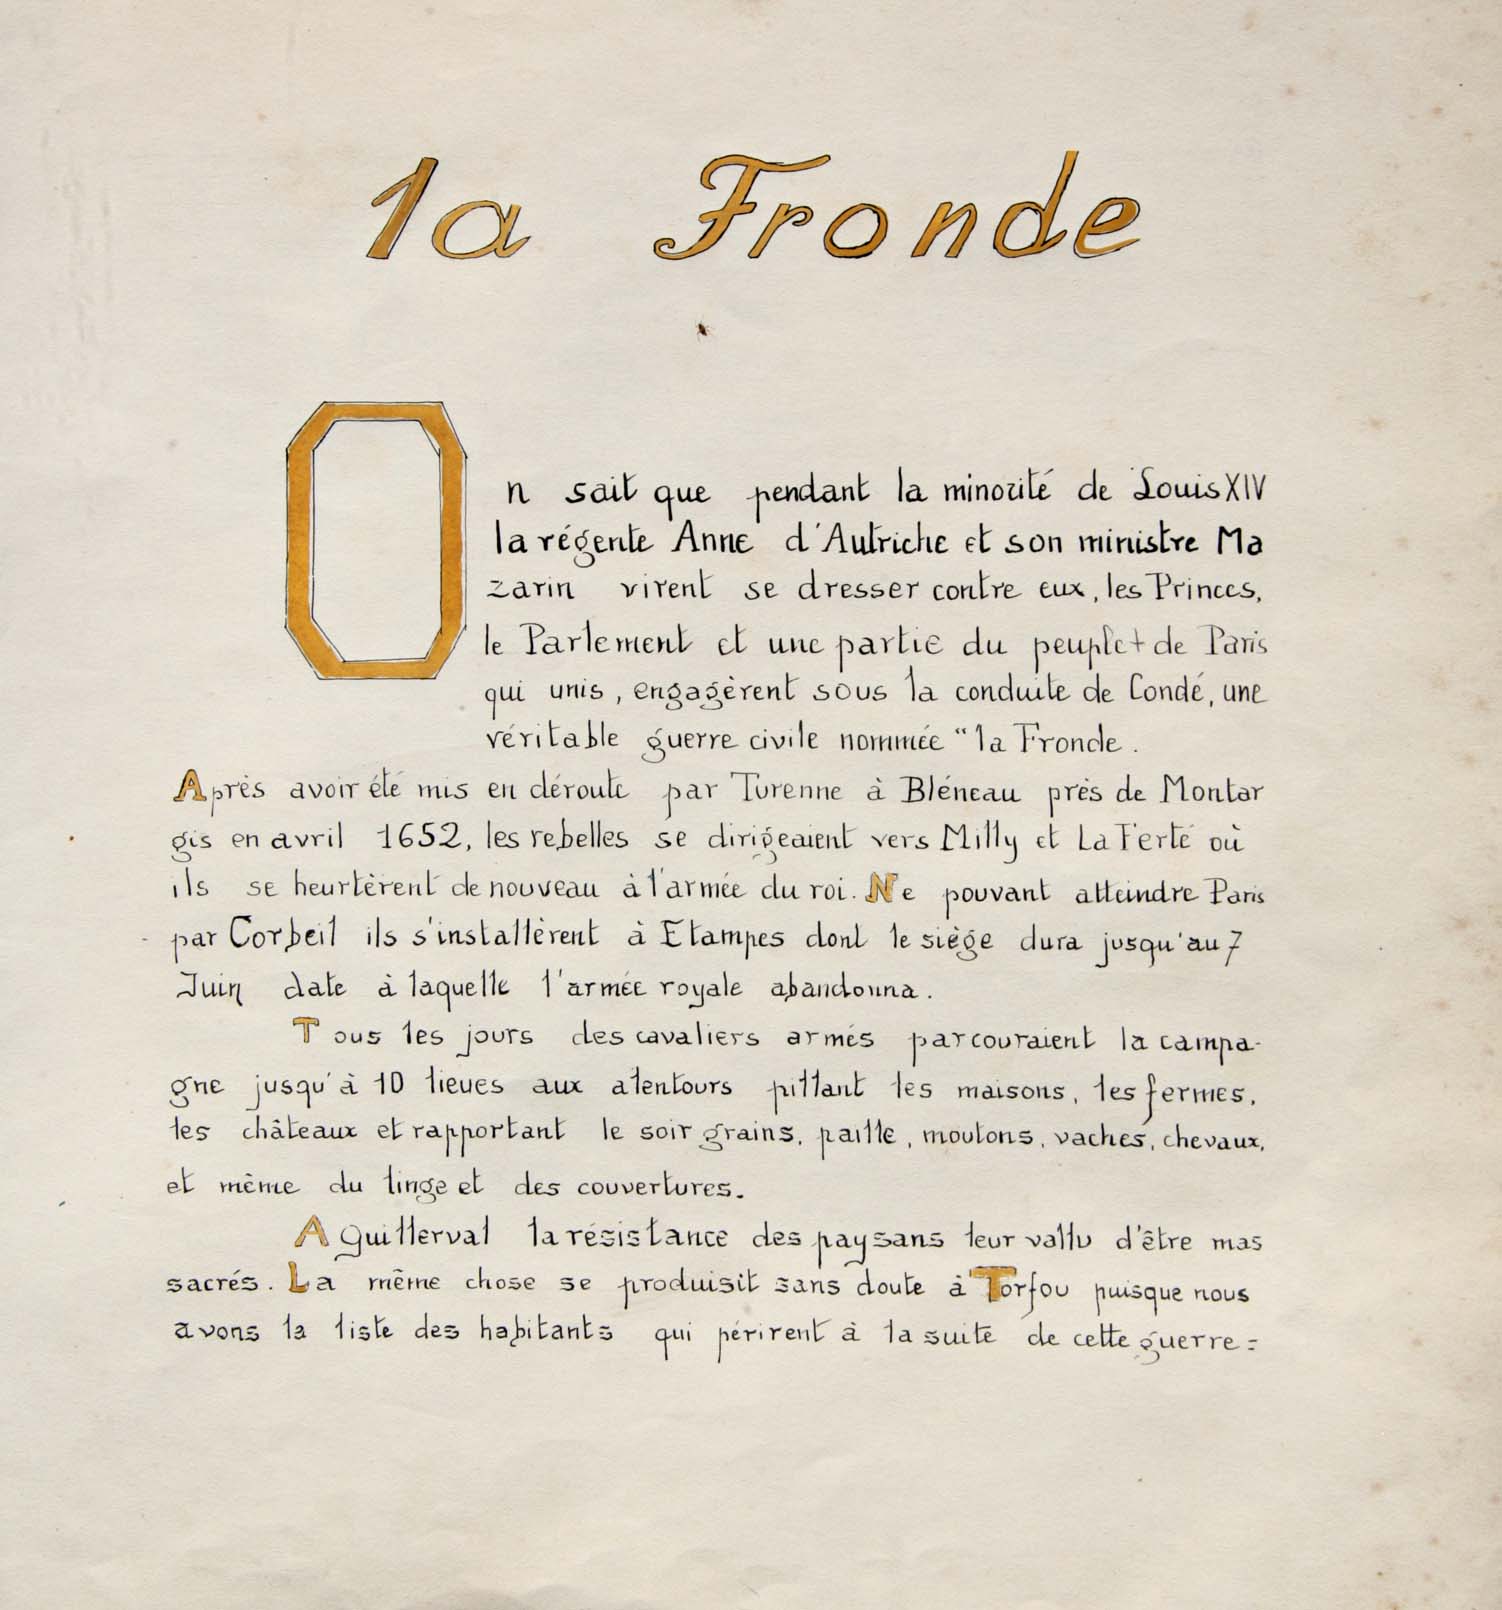 la Fronde
On sait que pendant la minorité de Louis XIV
la régente Anne d'Autriche et son ministre Ma
zarin virent se dresser contre eux, les Princes,
le Parlement et une partie du peuple de Paris
qui unis, engagèrent sous la conduite de Condé, une
véritable guerre civile nommée "la Fronde.
Après avoir été mis en déroute par Turenne à Bléneau près de Montar
gis en avril 1652, les rebelles se dirigeaient vers Milly et La Ferté où
ils se heurtèrent de nouveau à l'armée du roi. Ne pouvant atteindre Paris
par Corbeil ils s'installèrent à Etampes dont le siège dura jusqu'au 7
Juin date à laquelle l'armée royale abandonna.
Tous les jours des cavaliers armés parcouraient la campa-
gne jusqu'à 10 lieues aux alentours pillant les maisons, les fermes,
les châteaux et rapportant le soir grains, paille, moutons, vaches, chevaux,
et même du linge et des couvertures.
A Guillerval la résistance des paysans leur vallu d'être mas
sacrés. La même chose se produisit sans doute à Torfou puisque nous
avons la liste des habitants qui périrent à la suite de cette guerre=